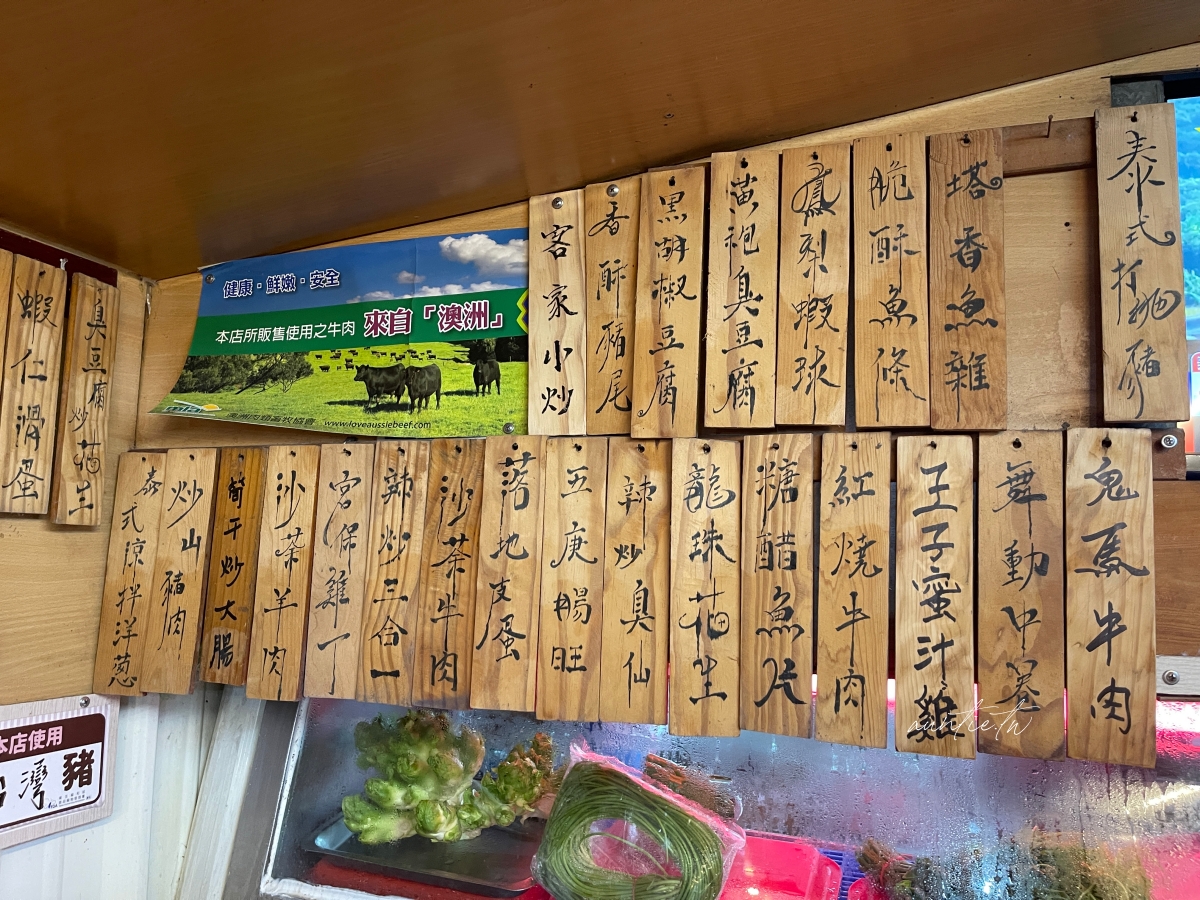 健康・鮮嫩・安全
本店所販售使用之牛肉 來自「澳洲」
www.loveaussiebeef.com
蝦仁滑蛋
臭豆腐炒花生
客家小炒
香酥豬尾
黑胡椒豆腐
黃袍臭豆腐
鳳梨蝦球
脆酥魚條
塔香魚雜
泰式打拋豬
泰式涼拌洋蔥
炒山豬肉
筍干炒大腸
沙茶羊肉
宮保雞丁
辣炒三合一
沙茶牛肉
落地皮蛋
五庚腸旺
辣炒臭仙
龍珠花生
糖醋魚片
紅燒牛肉
王子蜜汁雞
舞動中卷
鬼馬牛肉
本店使用
台灣豬
auntie.tw